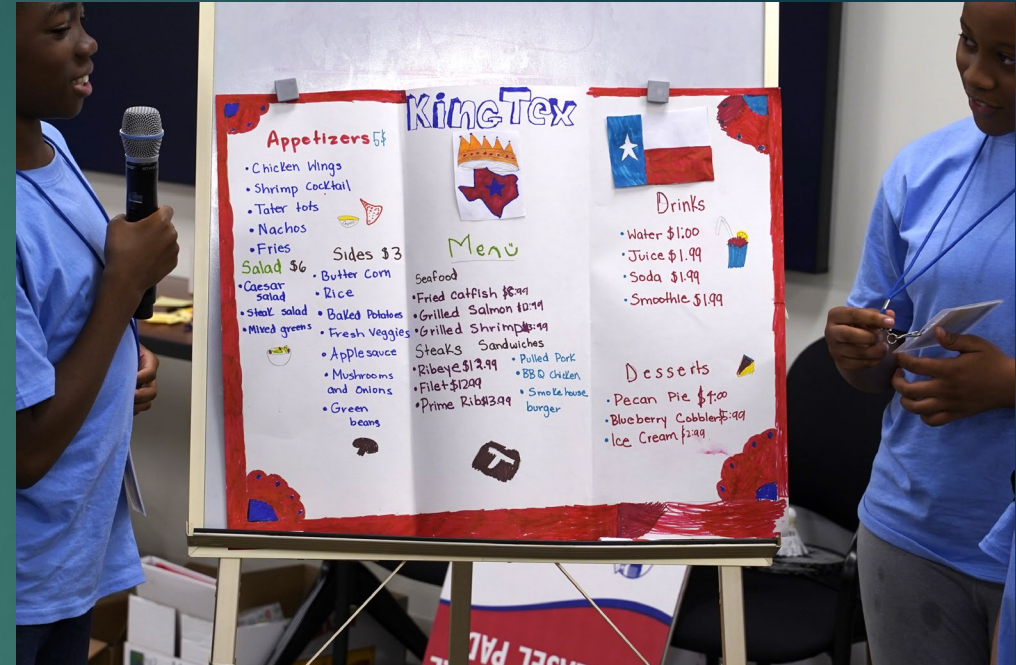 KingTex
Appetizers 5$
• Chicken Wings
• Shrimp Cocktail
• Tater tots
• Nachos
• Fries
Salad $6
• Caesar
salad
• Steak salad
• Mixed greens
Sides $3
• Butter Corn
• Rice
• Baked Potatoes
• Fresh Veggies
• Applesauce
• Mushrooms
and Onions
• Green
beans
Menu
Seafood
• Fried Catfish
• Grilled Salmon
• Grilled Shrimp
Steaks
• Ribeye $13.99
• Filet $12.99
• Prime Rib $13.99
Sandwiches
• Pulled Pork
• BBQ Chicken
• Smokehouse
burger
T
Drinks
• Water $1.00
• Juice $1.99
• Soda $1.99
• Smoothie $1.99
Desserts
• Pecan Pie $4.00
• Blueberry Cobbler $5.99
• Ice Cream $2.99
EASEL PAD